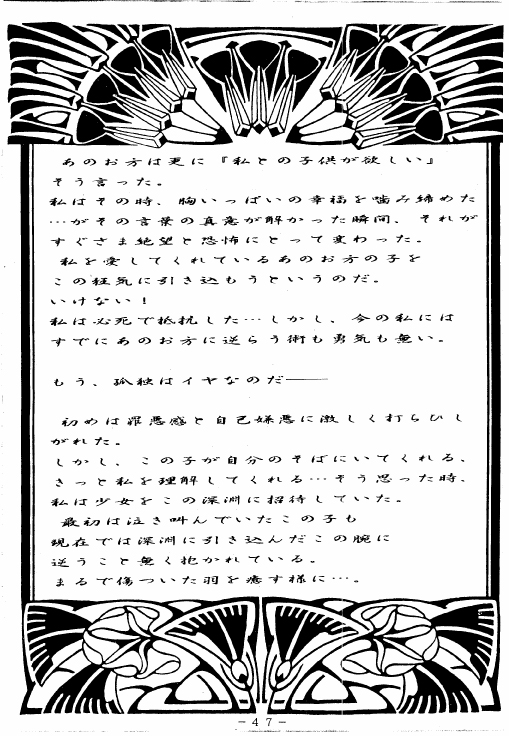 あのお方は更に『私との子供が欲しい』
そう言った。
私はその時、胸いっぱいの幸福を噛み締めた
…がその言葉の真意が解かった瞬間、それが
すぐさま絶望と恐怖にとって変わった。
私を愛してくれているあのお方の子を
この狂気に引き込もうというのだ。
いけない！
私は必死で抵抗した…しかし、今の私には
すでにあのお方に逆らう術も勇気も無い。
もう、孤独はイヤなのだ――
初めは罪悪感と自己嫌悪に激しく打ちひし
がれた。
しかし、この子が自分のそばにいてくれる、
きっと私を理解してくれる…そう思った時、
私は少女をこの深淵に招待していた。
最初は泣き叫んでいたこの子も
現在では深淵に引き込んだこの腕に
逆うこと無く抱かれている。
まるで傷ついた羽を癒す様に…。
－４７－